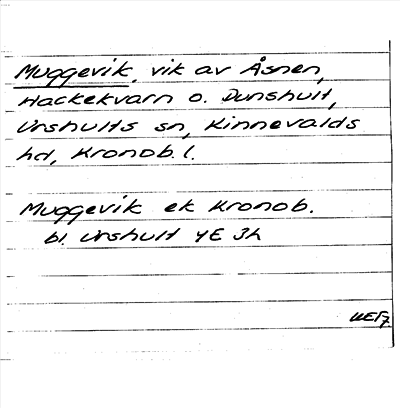 Muggevik, vik av Åsnen,
Hackekvarn o. Dunshult,
Urshults sn, Kinnevalds
hd, Kronob. l.
Muggevik ek Kronob.
bl. Urshult 4E 3h